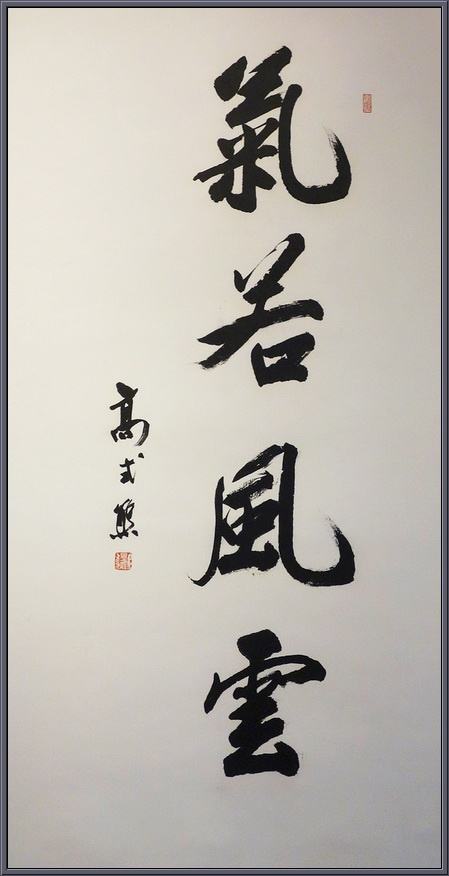 氣若風雲
高式熊